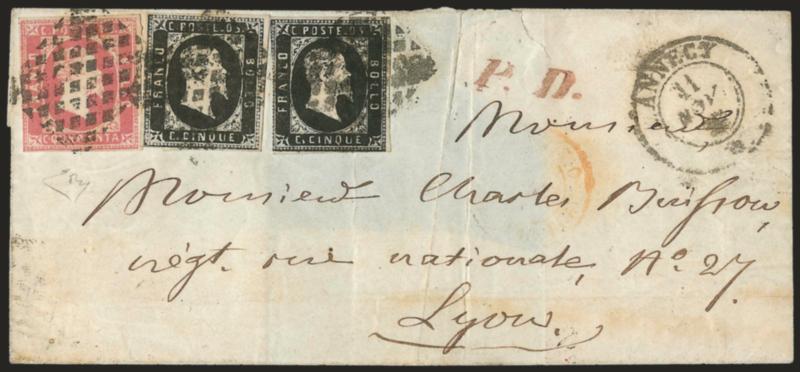 C. POSTE. 05
C. POSTE. 05
FRANCO
BOLLO
C. CINQUE
FRANCO
BOLLO
C. CINQUE
P. D.
ANNECY
11
Monsieur
Monsieur Charles Buisson,
négt. rue nationale, No. 27.
Lyon.